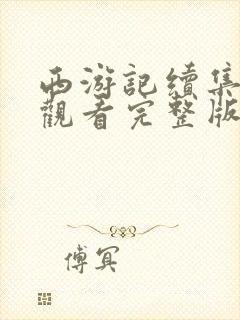 西游記續集
觀看完整版
傅冥